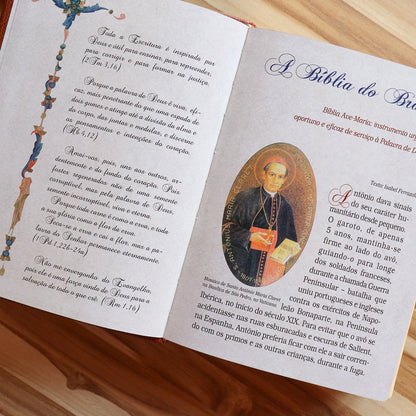 Toda a Escritura é inspirada por
Deus e útil para ensinar, para repreender,
para corrigir e para formar na justiça.
(2Tm 3,16)
Porque a palavra de Deus é viva, efi-
caz, mais penetrante do que uma espada de
dois gumes e atinge até a divisão da alma e
do corpo, das juntas e medulas, e discerne
os pensamentos e intenções do coração.
(Hb 4,12)
Amai-vos, pois, uns aos outros, ar-
dentemente e do fundo do coração. Pois
fostes regenerados não de uma semente
corruptível, mas pela palavra de Deus,
semente incorruptível, viva e eterna.
Porque toda carne é como a erva, e toda
a sua glória como a flor da erva.
Seca-se a erva e cai a flor, mas a pa-
lavra do Senhor permanece eternamente.
(1Pd 1,22b-25a)
Não me envergonho do Evangelho,
pois ele é uma força vinda de Deus para a
salvação de todo o que crê. (Rm 1,16)
A Bíblia do Bra
Bíblia Ave-Maria: instrumento
oportuno e eficaz de serviço à Palavra de D
Texto: Isabel Fernan
António dava sinais
do seu caráter hu-
manitário desde pequeno.
O garoto, de apenas
5 anos, mantinha-se
firme ao avô,
guiando-o para longe
dos soldados franceses,
durante a chamada Guerra
Peninsular – batalha que
uniu portugueses e ingleses
contra os exércitos de Napo-
leão Bonaparte, na Península
Ibérica, no início do século XIX. Para evitar que o avô se
acidentasse nas ruas esburacadas e escuras de Sallent,
na Espanha, Antônio preferia ficar com ele a sair corren-
do com os primos e as outras crianças, durante a fuga.
Mosaico de Santo Antônio Maria Claret
na Basílica de São Pedro, no Vaticano